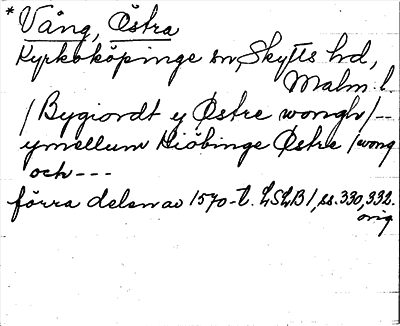 * Vång, Östra
Kyrkoköpinge sn, Skytts hd,
Malm. l.
/Bygiordt y Østre wongh/--
ymellum Kiöbinge Østre /wong
och ---
förra delen av 1570-t. LSLB 1, ss. 330, 332.
orig